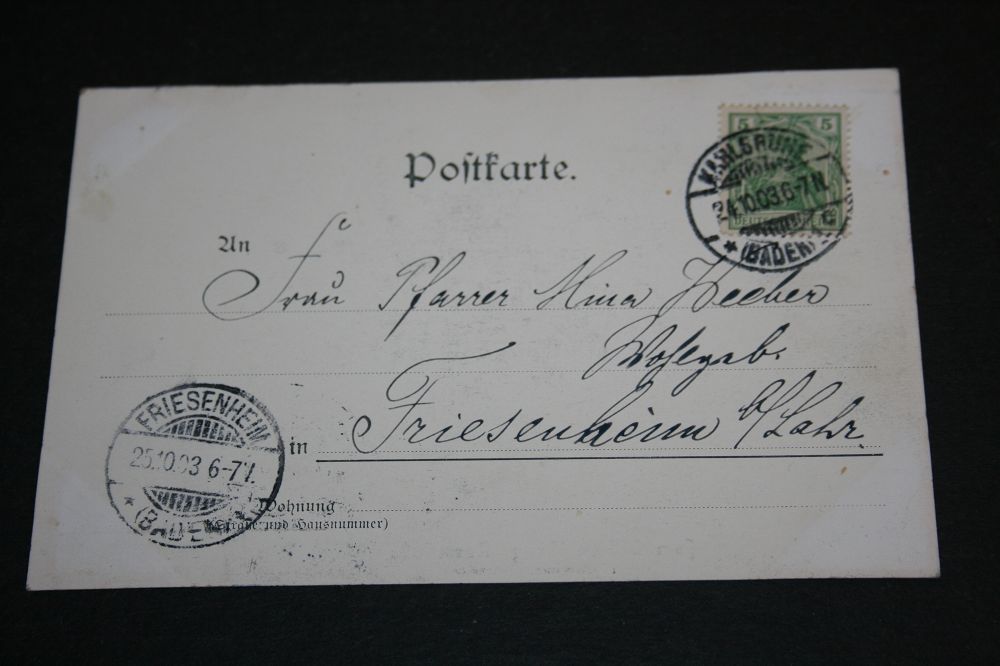 Postkarte.
5 5
KARLSRUHE
24.10.03.6-7N
(BADEN)
An
Frau Pfarrer Mina Heeber
Wohlgeb.
in Friesenheim b/Lahr.
FRIESENHEIM
25.10.03 6-7V.
(BADEN)
Wohnung
(Straße und Hausnummer)